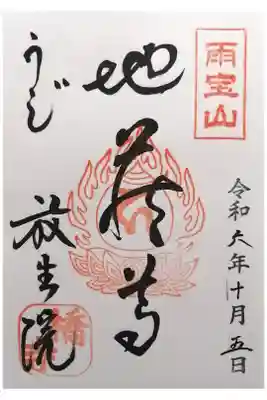 雨宝山
令和六年十月五日
地蔵尊
うぢ
放生院